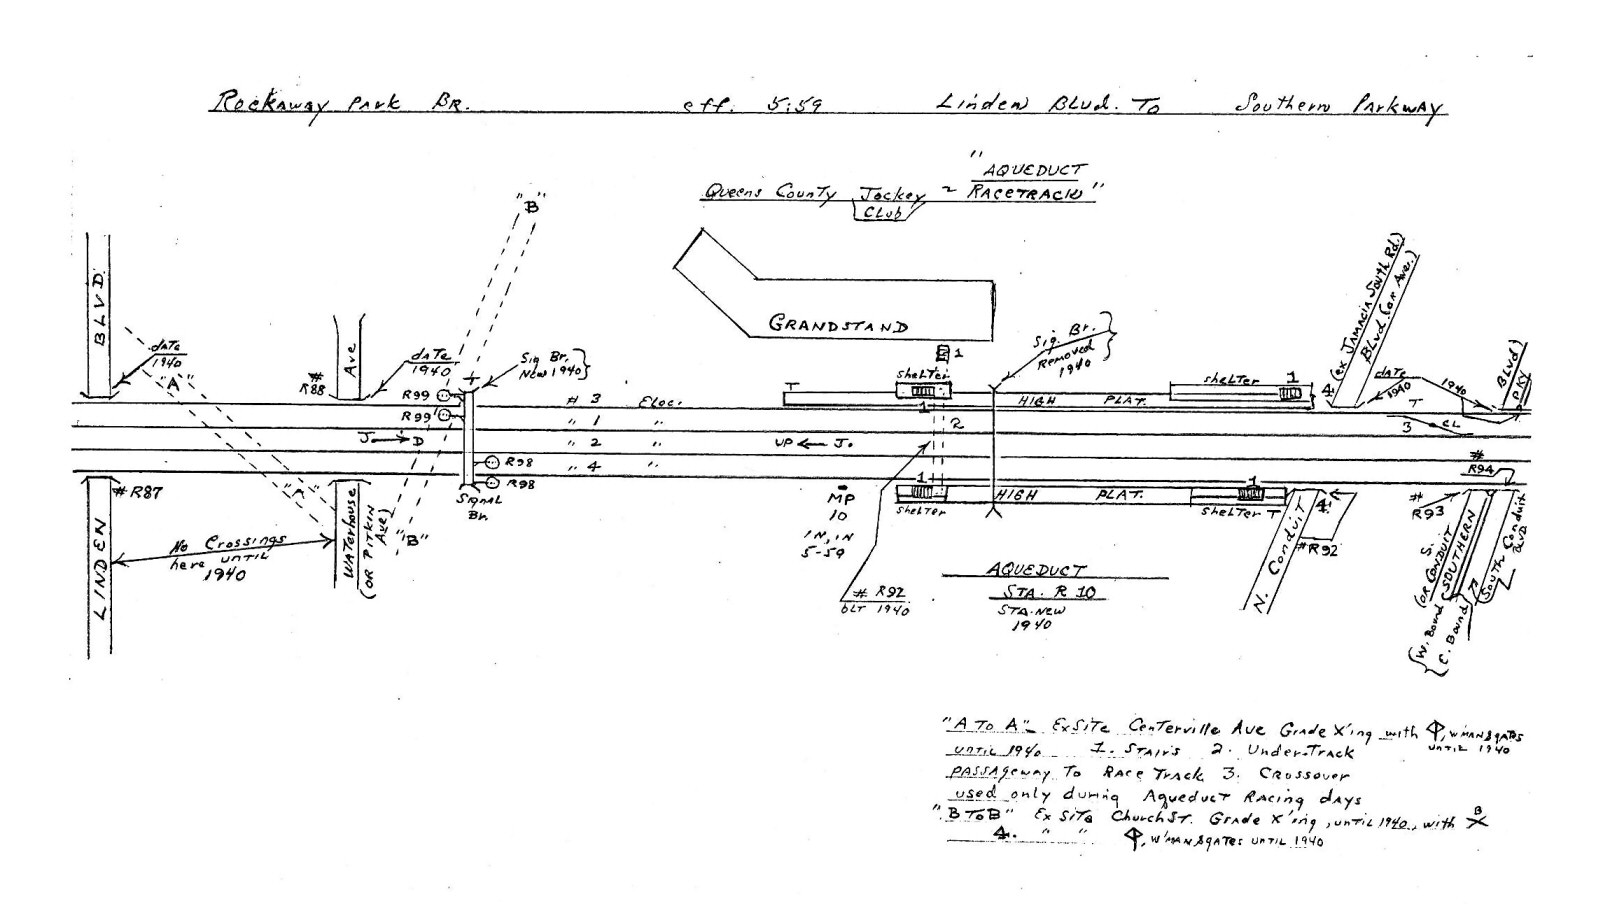 Rockaway Park Br. eff. 5:59 Linden Blvd. To Southern Parkway
"AQUEDUCT
RACETRACK"
Queens County Jockey ~
Club
"B"
BLVD.
date
1940
"A"
Ave
#
R88
date
1940
R99
R99
Sig Br.
New 1940
GRANDSTAND
1
shelter
1
T
Sig. Br.
Removed
1940
shelter
1
4
(ex Jamacia South Rd.)
Blvd. (or Ave.)
date
1940
1940
Blvd)
PKY
# 3 Elec.
" 1 "
" 2 "
" 4 "
HIGH PLAT.
2
T
3
CL
J. → D
UP ← J.
R98
R98
Signal
Br.
#R87
LINDEN
No Crossings
here until
1940
"A"
Waterhouse
(or Pitkin
Ave)
"B"
MP
10
IN, IN
5-59
1
shelter
HIGH PLAT.
1
shelter T
# R92
blt 1940
AQUEDUCT
STA. R 10
STA. NEW
1940
4
N. Conduit
#R92
#
R93
#
R94
S.
(or Conduit
(Southern
South Conduit
BLVD.
W. Bound
E. Bound
"A To A" Ex Site Centerville Ave Grade X'ing with , w'man & gates
until 1940
until 1940 1. Stairs 2. Under-Track
passageway To Race Track 3. Crossover
used only during Aqueduct Racing days
"B To B" Ex Site Church St. Grade X'ing, until 1940, with X
B
4. " " , w'man & gates until 1940